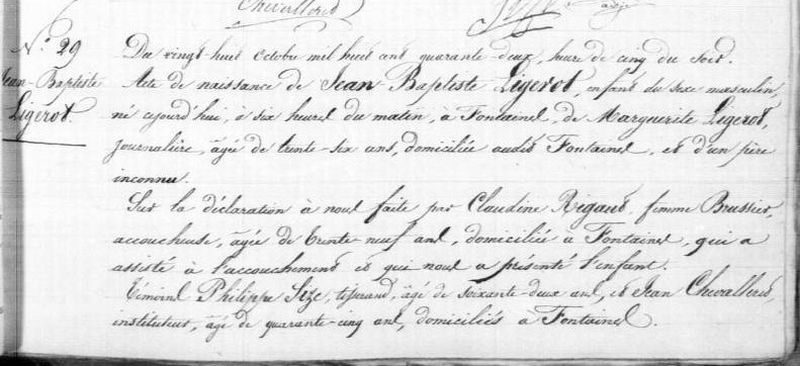 Chevallerio
N.° 29
Jean-Baptiste
Ligerot.
Du vingt-huit octobre mil huit cent quarante-deux, heure de cinq du soir.
Acte de naissance de Jean-Baptiste Ligerot, enfant du sexe masculin,
né cejourd'hui, à six heures du matin, à Fontaines, de Marguerite Ligerot,
journalière, âgée de trente-six ans, domiciliée audit Fontaines, et d'un père
inconnu.
Sur la déclaration à nous faite par Claudine Rigaud, femme Brussier,
accoucheuse, âgée de trente-neuf ans, domiciliée à Fontaines, qui a
assisté à l'accouchement et qui nous a présenté l'enfant.
Témoins Philippe Size, tisserand, âgé de soixante-deux ans, et Jean
instituteur, âgé de quarante-cinq ans, domiciliés à Fontaines.